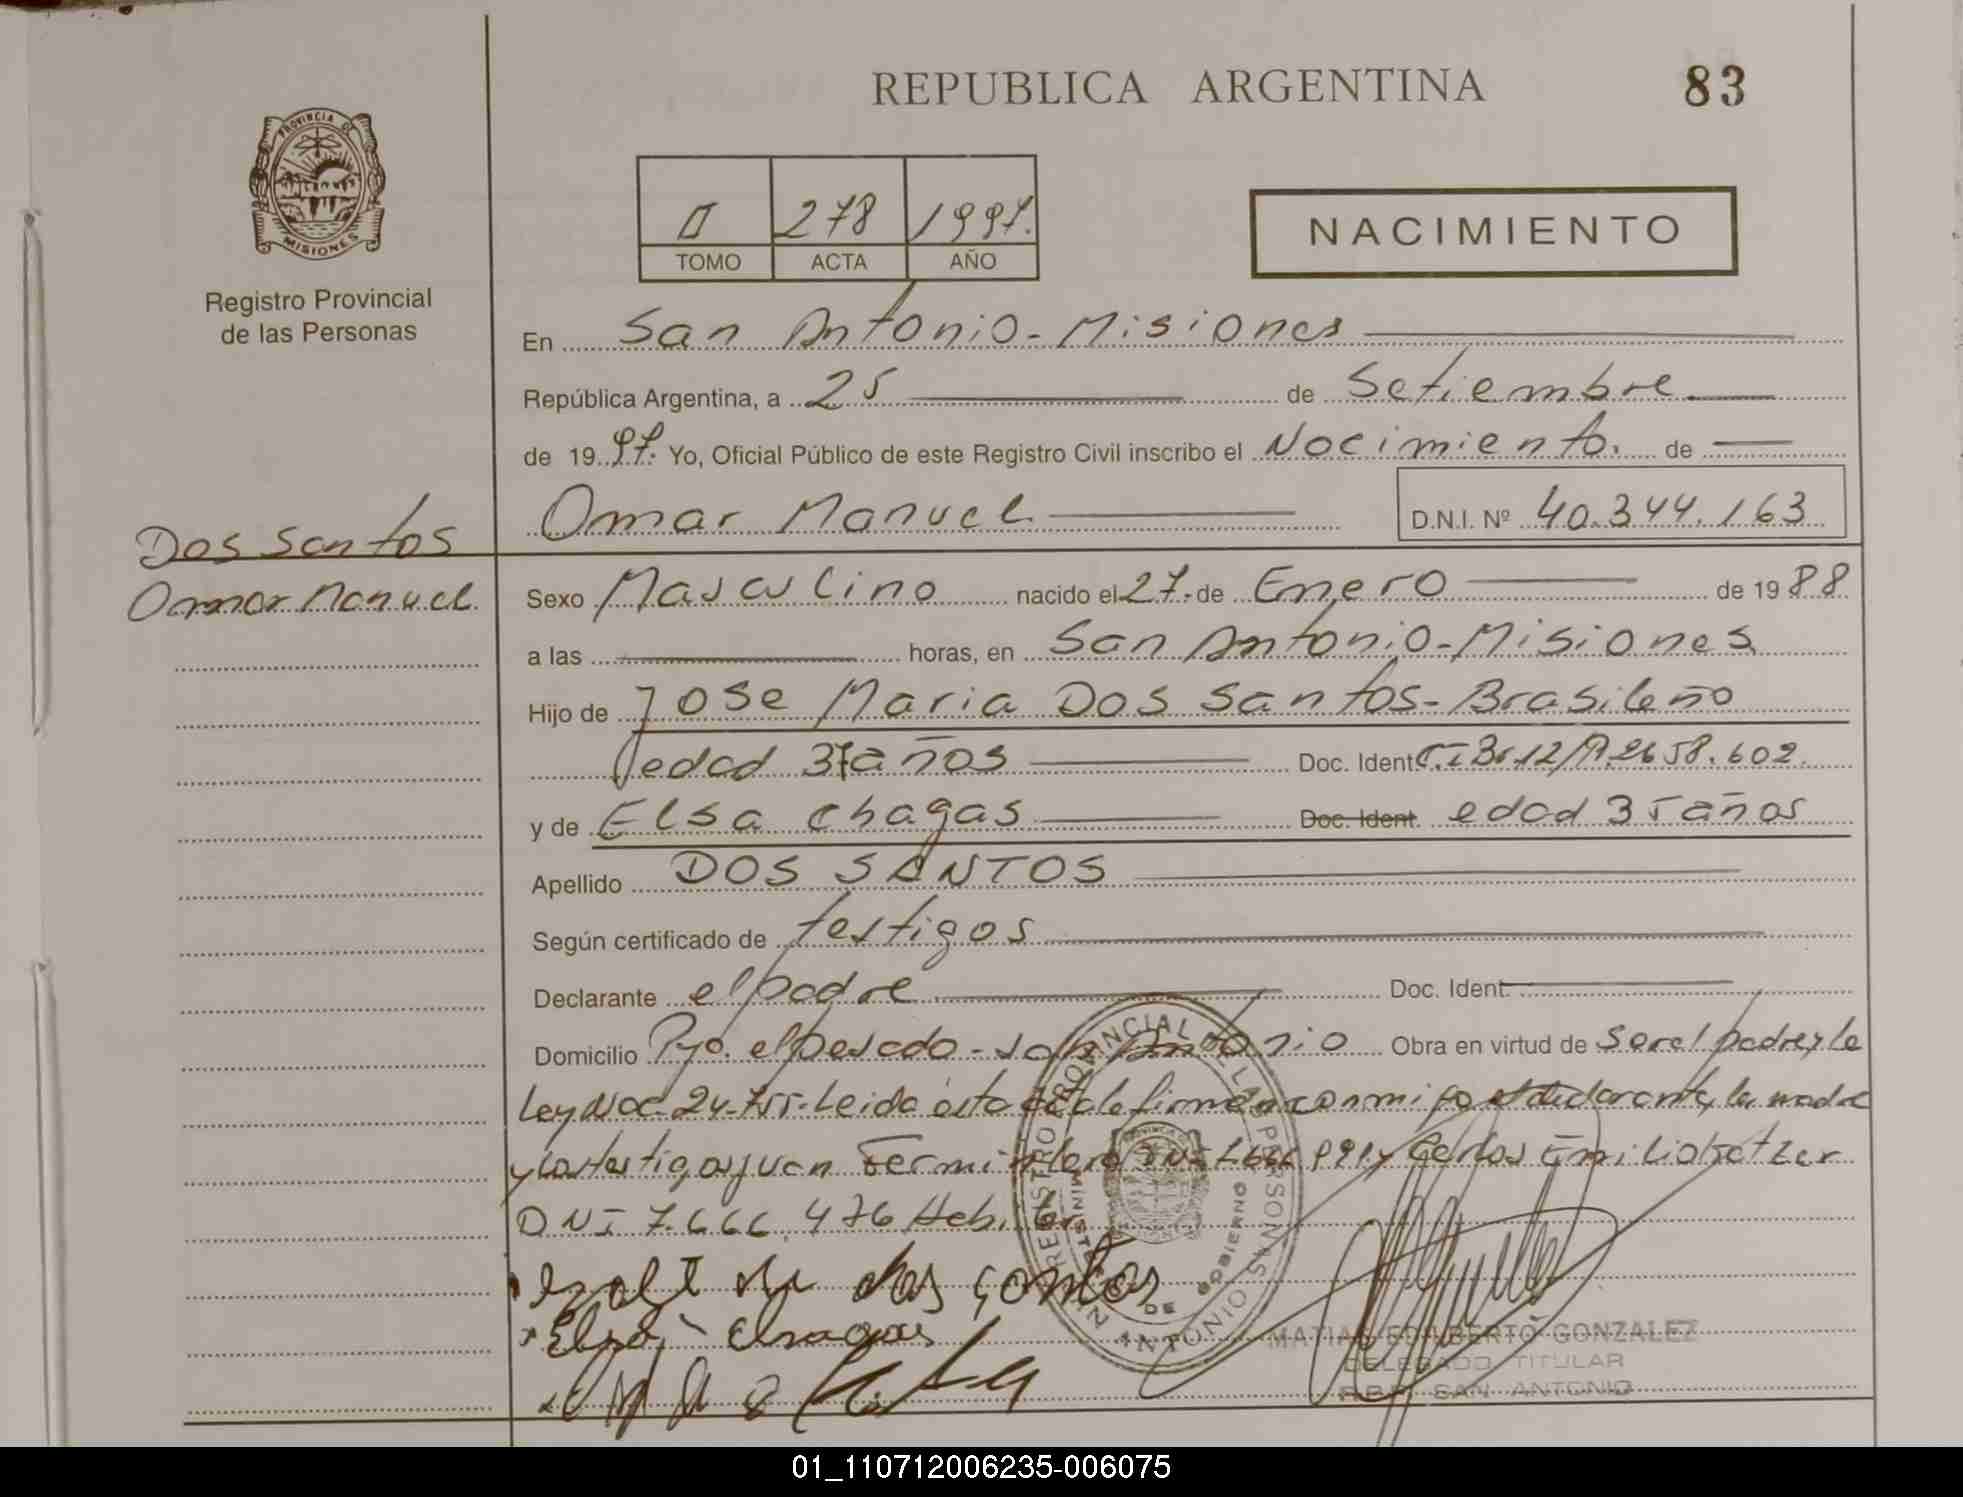 REPUBLICA ARGENTINA
83
PROVINCIA DE
MISIONES
Registro Provincial
de las Personas
II 278 1997.
TOMO ACTA AÑO
NACIMIENTO
En San Antonio - Misiones
República Argentina, a 25 de Setiembre
de 1997. Yo, Oficial Público de este Registro Civil inscribo el Nacimiento. de
Omar Manuel D.N.I. Nº 40.344.163
Dos Santos
Omar Manuel
Sexo Masculino nacido el 27. de Enero de 1988
a las horas, en San Antonio - Misiones
Hijo de Jose Maria Dos Santos - Brasileño
edad 37 años Doc. Ident. C.I Br 12/R 2658.602.
y de Elsa Chagas Doc. Ident. edad 35 años
Apellido DOS SANTOS
Según certificado de testigos
Declarante el padre Doc. Ident.
Domicilio Pjo. el pesado - San Antonio Obra en virtud de ser el padre y la
Ley Nac. 24.755. Leida esta acta la firman conmigo el declarante, la madre
y los testigos Juan Fermin DNI y Carlos Emilio
DNI 7.666.476
dos santos
Elsa Chagas
REGISTRO PROVINCIAL DE LAS PERSONAS
MINISTERIO DE GOBIERNO
SAN ANTONIO
MATIAS EDALBERTO GONZALEZ
DELEGADO TITULAR
R.P.P. SAN ANTONIO
01_110712006235-006075